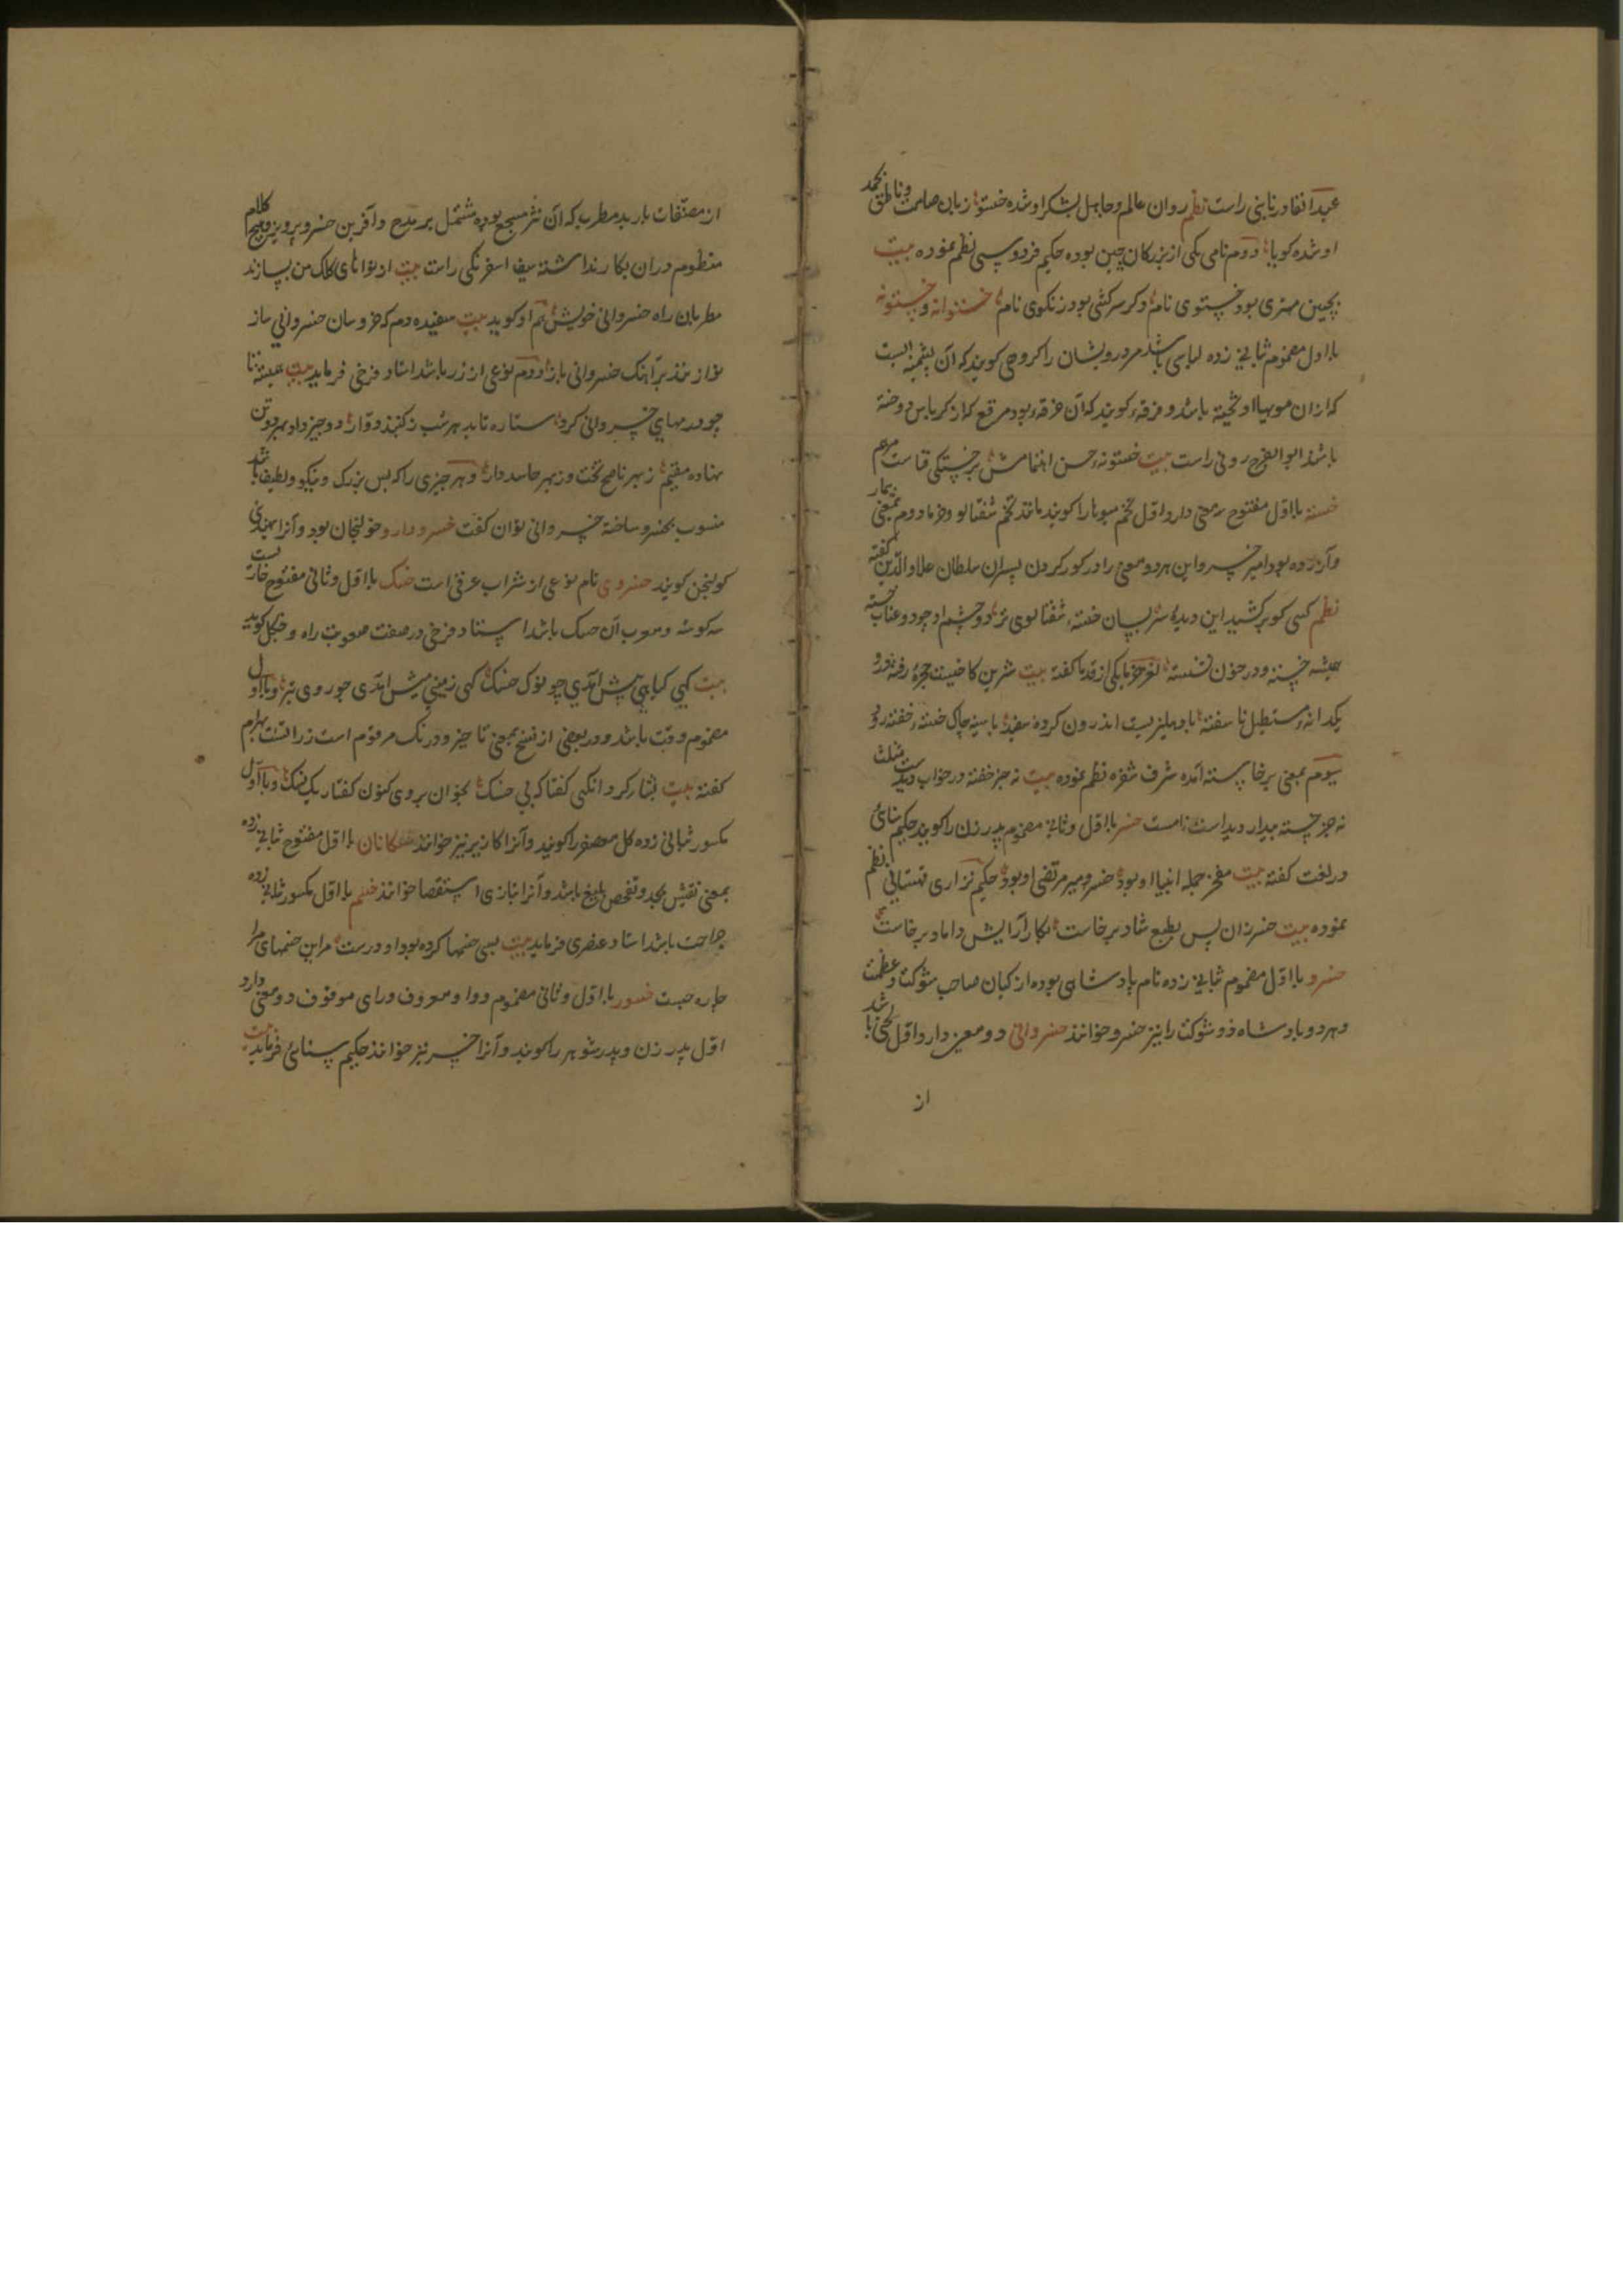 عبدالقادر نایینی راست نظم روان عالم و جاهل بشکر او شده خستو زبان صامت و ناطق بحمد
او شده کویا دوم نام یکی از بزرکان چین بوده حکیم فردوسی نظم نموده بیت
بچین مهتری بود خستوی نام دکر سرکشی بود زنکوی نام خستوانه و خستونه
با اول مضموم بثانی زده لباسی باشد مر درویشان را کروهی کویند که آن پشمینه ایست
که ازان مویها اویخته باشد و فرقهٔ کویند که آن خرقهٔ بود مرقع که از کرباس دوخته
باشند ابو الفرج رونی راست بیت خستونهٔ حسن اهتمامش بر خستکی قیاست مرهم
خسته با اول مفتوح سه معنی دارد اول تخم میوها را کویند مانند تخم شفتالو و خرما دوم بمعنی بیمار
و آزرده بود امیر خسرو این هر دو معنی را در کور کردن پسران سلطان علاو الدین کفته
نظم کسی کو برکشید این دیدهٔ سر بسان خستهٔ شفتالوی تر دو چشم او چو دو عناب خسته
همیشه خسته و در خون نشسته لغز خرما یکی از قدما کفته بیت شرین کا خیست حجره رفته درو
یکدانهٔ مستطیل نا سفته با وهلیزیست اندرون کرده سفید با سینه چاک خستهٔ خفته درو
سیوم بمعنی برخاسته آمده شرف شفره نظم نموده بیت نه جز خفته در خواب دیدست مثلت
نه جز خسته بیدار دیداست نامت خسر با اول و ثانی مضموم پدر زن را کویند حکیم سنائی
در لغت کفته بیت مفخر جمله انبیا او بود خسر و میر مرتضی او بود حکیم نزاری قهستانی نظم
نموده بیت خسر زان پس بطبع شاد برخاست بکار آرایش داماد برخاست
خسرو با اول مضموم بثانی زده نام پادشاهی بوده از کیان صاحب شوکت و عظمت
و هر دو پادشاه ذو شوکت را نیز خسرو خوانند خسروانی دو معنی دارد اول لحنی باشد
از
از مصنفات باربد مطرب که آن نثر مسجع بوده مشتمل بر مدح و آفرین خسرو پرویز و هیچ کلام
منظوم دران بکار نداشته سیف اسفرنکی راست بیت از نوا نای کلک من بسازند
مطربان راه خسروانی خویش هم او کوید بیت سفیده دم که خروسان خسروانی ساز
نوازنند بر آهنک خسروانی باز دوم نوعی از زر باشد استاد فرخی فرماید بیت همیشه تا
چو درمهای خسروانی کرد ستاره تابد هر شب ز کنبد دوار دو چیز دار بهر دو تن
نهاده مقیم ز بهر ناصح تخت و ز بهر حاسد دار و هر چیزی را که بس بزرک و نیکو و لطیف باشد
منسوب بخسرو ساخته خسروانی توان کفت خسرو دارو خولنجان بود و آنرا بهندی
کولنجن کویند خسروی نام نوعی از شراب عرقی است خسک با اول و ثانی مفتوح خاریست
سه کوشه و معرب آن حسک باشد استاد فرخی در صفت صعوبت راه و جنکل کوید
بیت کهی کیاهی پیش آمدی چو نوک خسک کهی زمینی پیش آمدی چو روی تبر و با اول
مضموم وقت باشد و در بعضی از نسخ بمعنی ناچیز و درنک مرقوم است زراتشت بهرام
کفته بیت نثار کرد انکهی کفتا که بی خسک بخوان بروی کنون کفتار یک یک و با اول
مکسور ثبانی زده کل معصفر را کویند و آنرا کازیر نیز خوانند خسکانان با اول مفتوح ثبانی زده
بمعنی تفتیش بجد و تفحص بلیغ باشد و آنرا بتازی استقصا خوانند خسم با اول مکسور ثبانی زده
جراحت باشد استاد عنصری فرماید بیت بسی خسمها کرده بود او درست مر این خسمهای مرا
چاره چیست خسور با اول و ثانی مضموم و واو معروف و رای موقوف دو معنی دارد
اول پدر زن و پدر شوهر را کویند و آنرا خسر نیز خوانند حکیم سنائی فرماید بیت